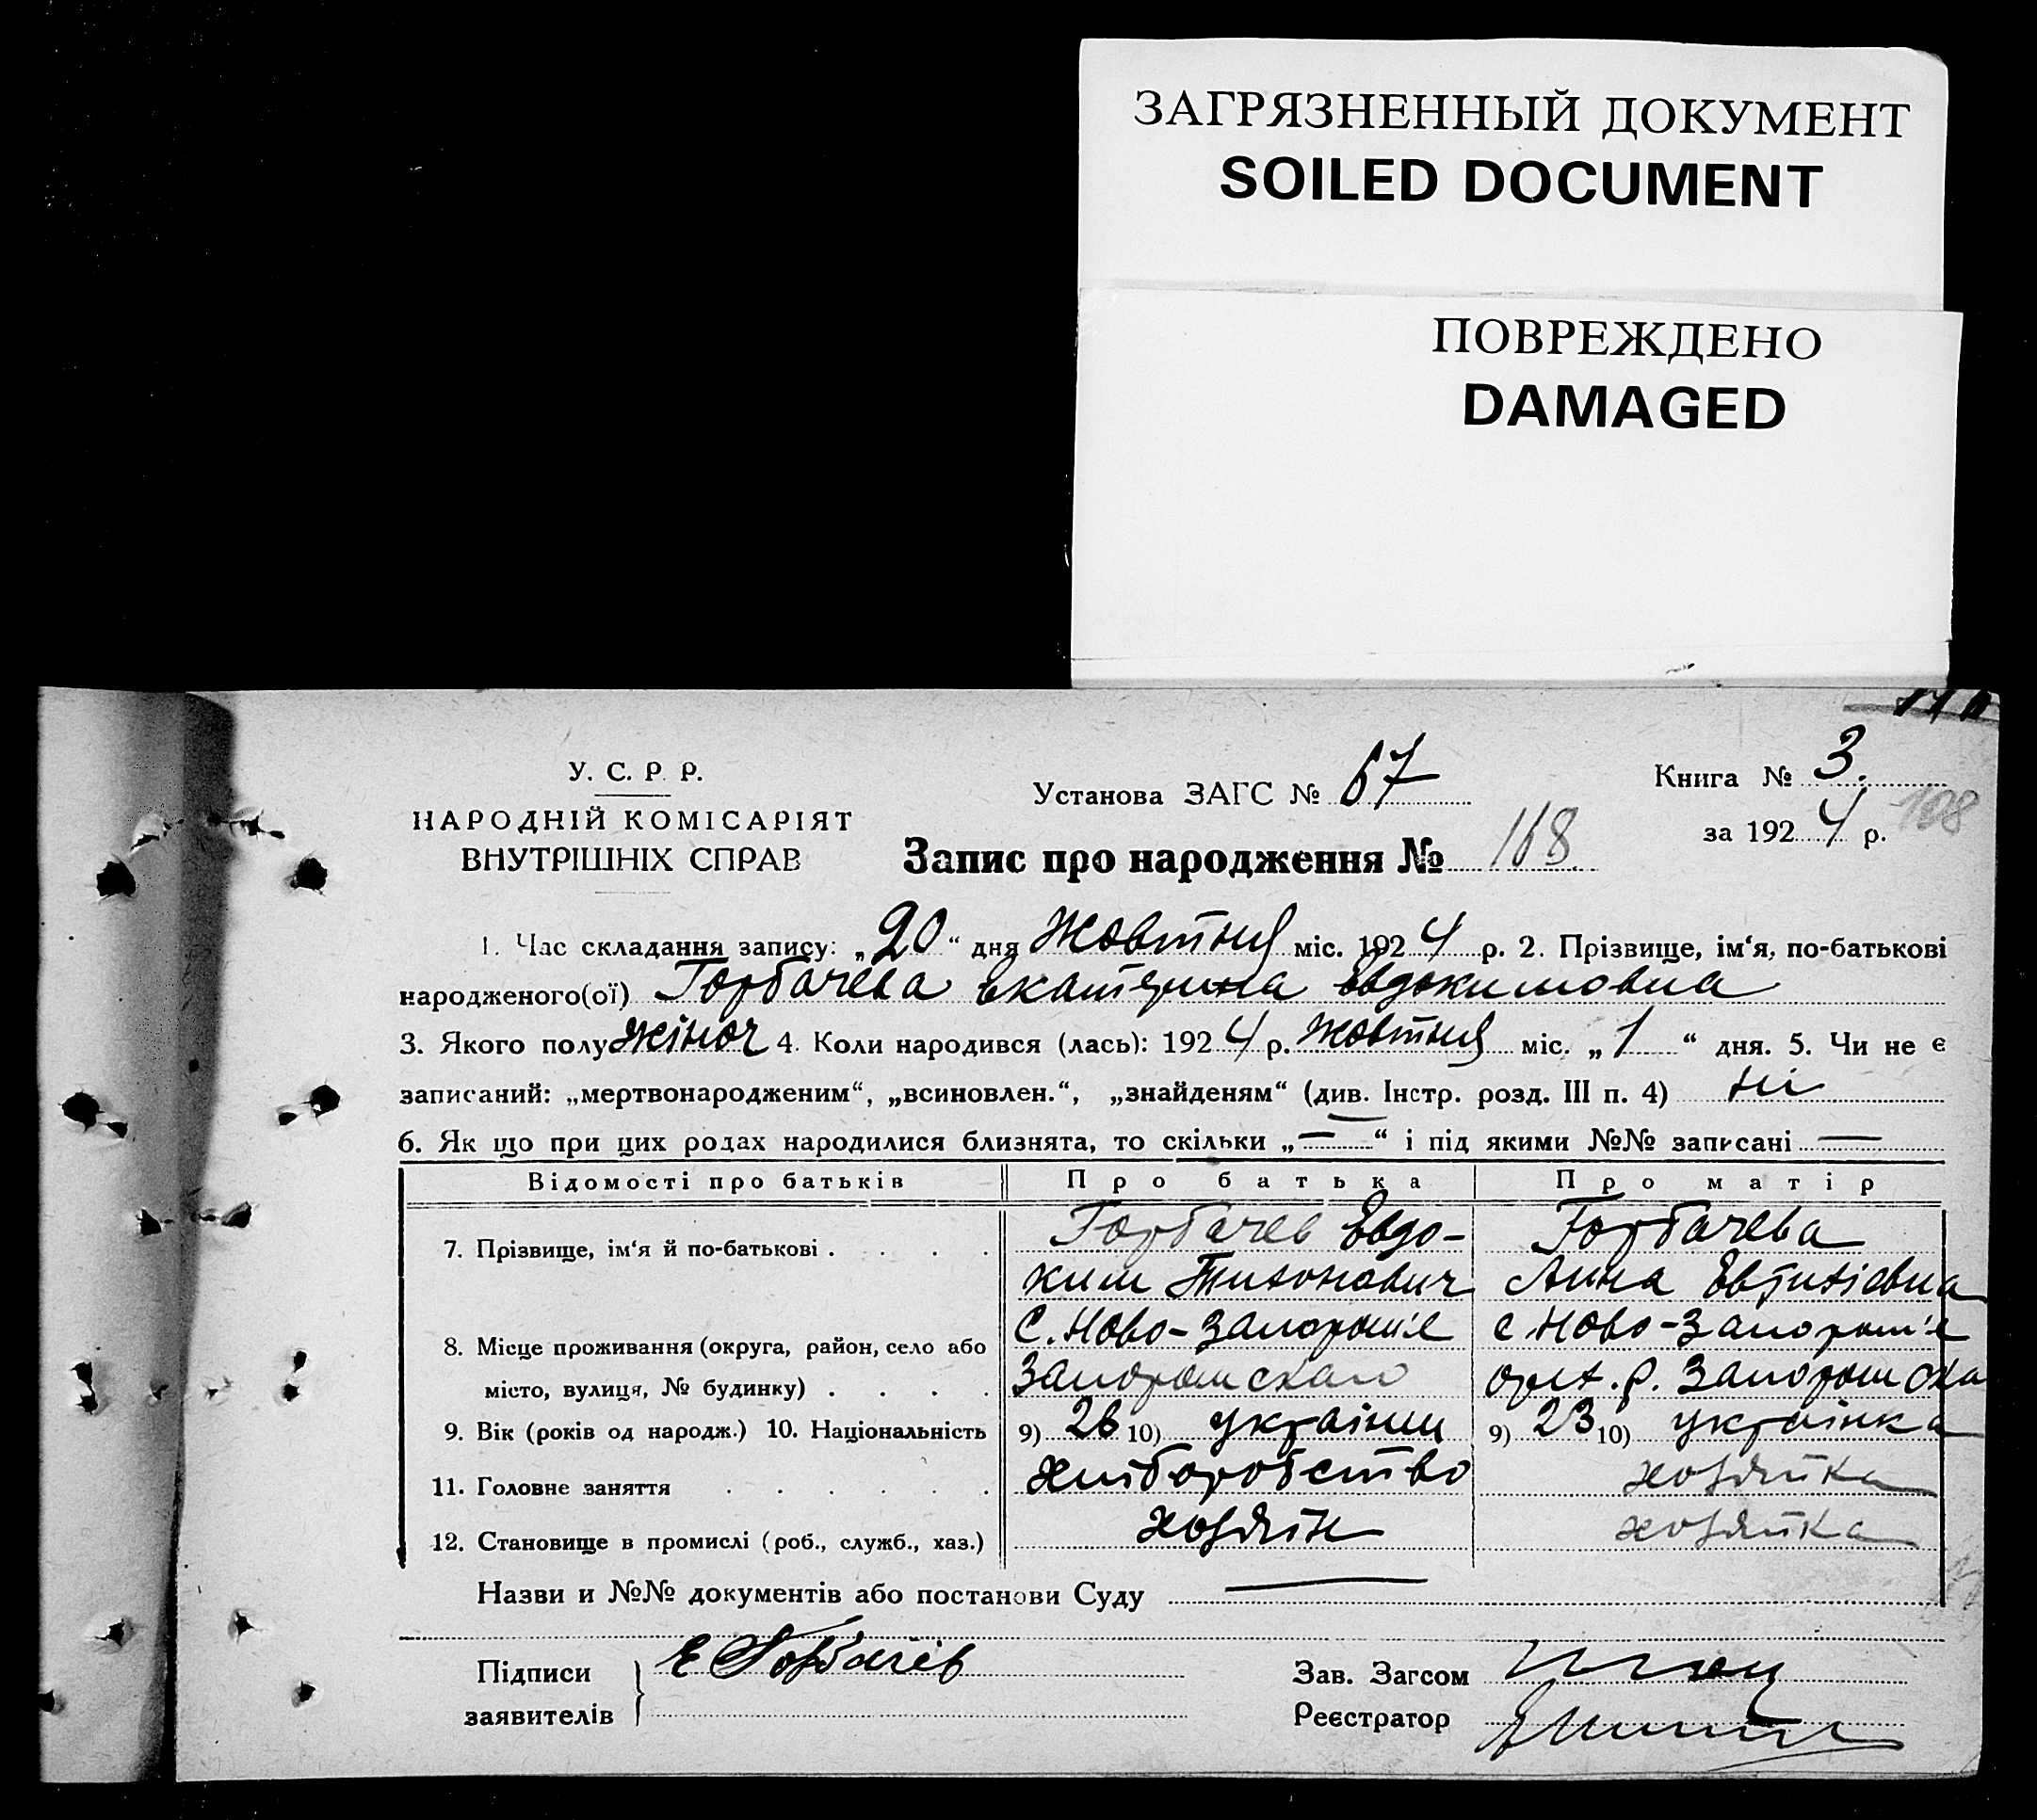 ЗАГРЯЗНЕННЫЙ ДОКУМЕНТ
SOILED DOCUMENT
ПОВРЕЖДЕНО
DAMAGED
У. С. Р. Р.
НАРОДНІЙ КОМІСАРІЯТ
ВНУТРІШНІХ СПРАВ
Установа ЗАГС № 67
Книга № 3.
за 1924 р.
108
Запис про народження № 168
1. Час складання запису: „20“ дня Жовтня міс. 1924 р. 2. Прізвище, ім‘я, по-батькові
народженого(ої) Горбачева Екатерина Евдокимовна
3. Якого полу жіноч 4. Коли народився (лась): 1924 р. Жовтня міс. „1“ дня. 5. Чи не є
записаний: „мертвонародженим“, „всиновлен.“, „знайденям“ (див. Інстр. розд. III п. 4) ні
6. Як що при цих родах народилися близнята, то скільки „—“ і під якими №№ записані —
Відомості про батьків Про батька Про матір
7. Прізвище, ім‘я й по-батькові . . . . Горбачев Евдо- Горбачева
ким Тихонович Анна Евтихіевна
8. Місце проживання (округа, район, село або С. Ново-Запорож'е с Ново-Запорож'е
місто, вулиця, № будинку) . . . .
9. Вік (років од народж.) 10. Національність 9) 26 10) українц 9) 23 10) українка
11. Головне заняття . . . . . . хліборобство хозяйка
12. Становище в промислі (роб., служб., хаз.) хозяін хозяйка
Назви и №№ документів або постанови Суду —
Підписи
заявителів
Е Горбачев
Зав. Загсом
Реєстратор